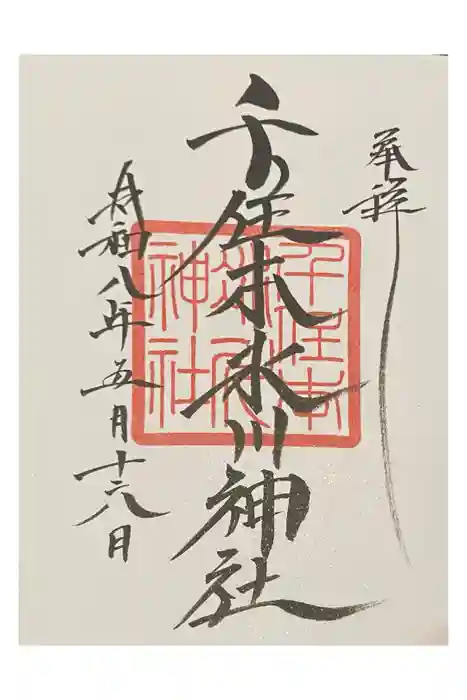 奉拝
千住本氷川神社
令和八年五月十六日
千住本
氷川
神社